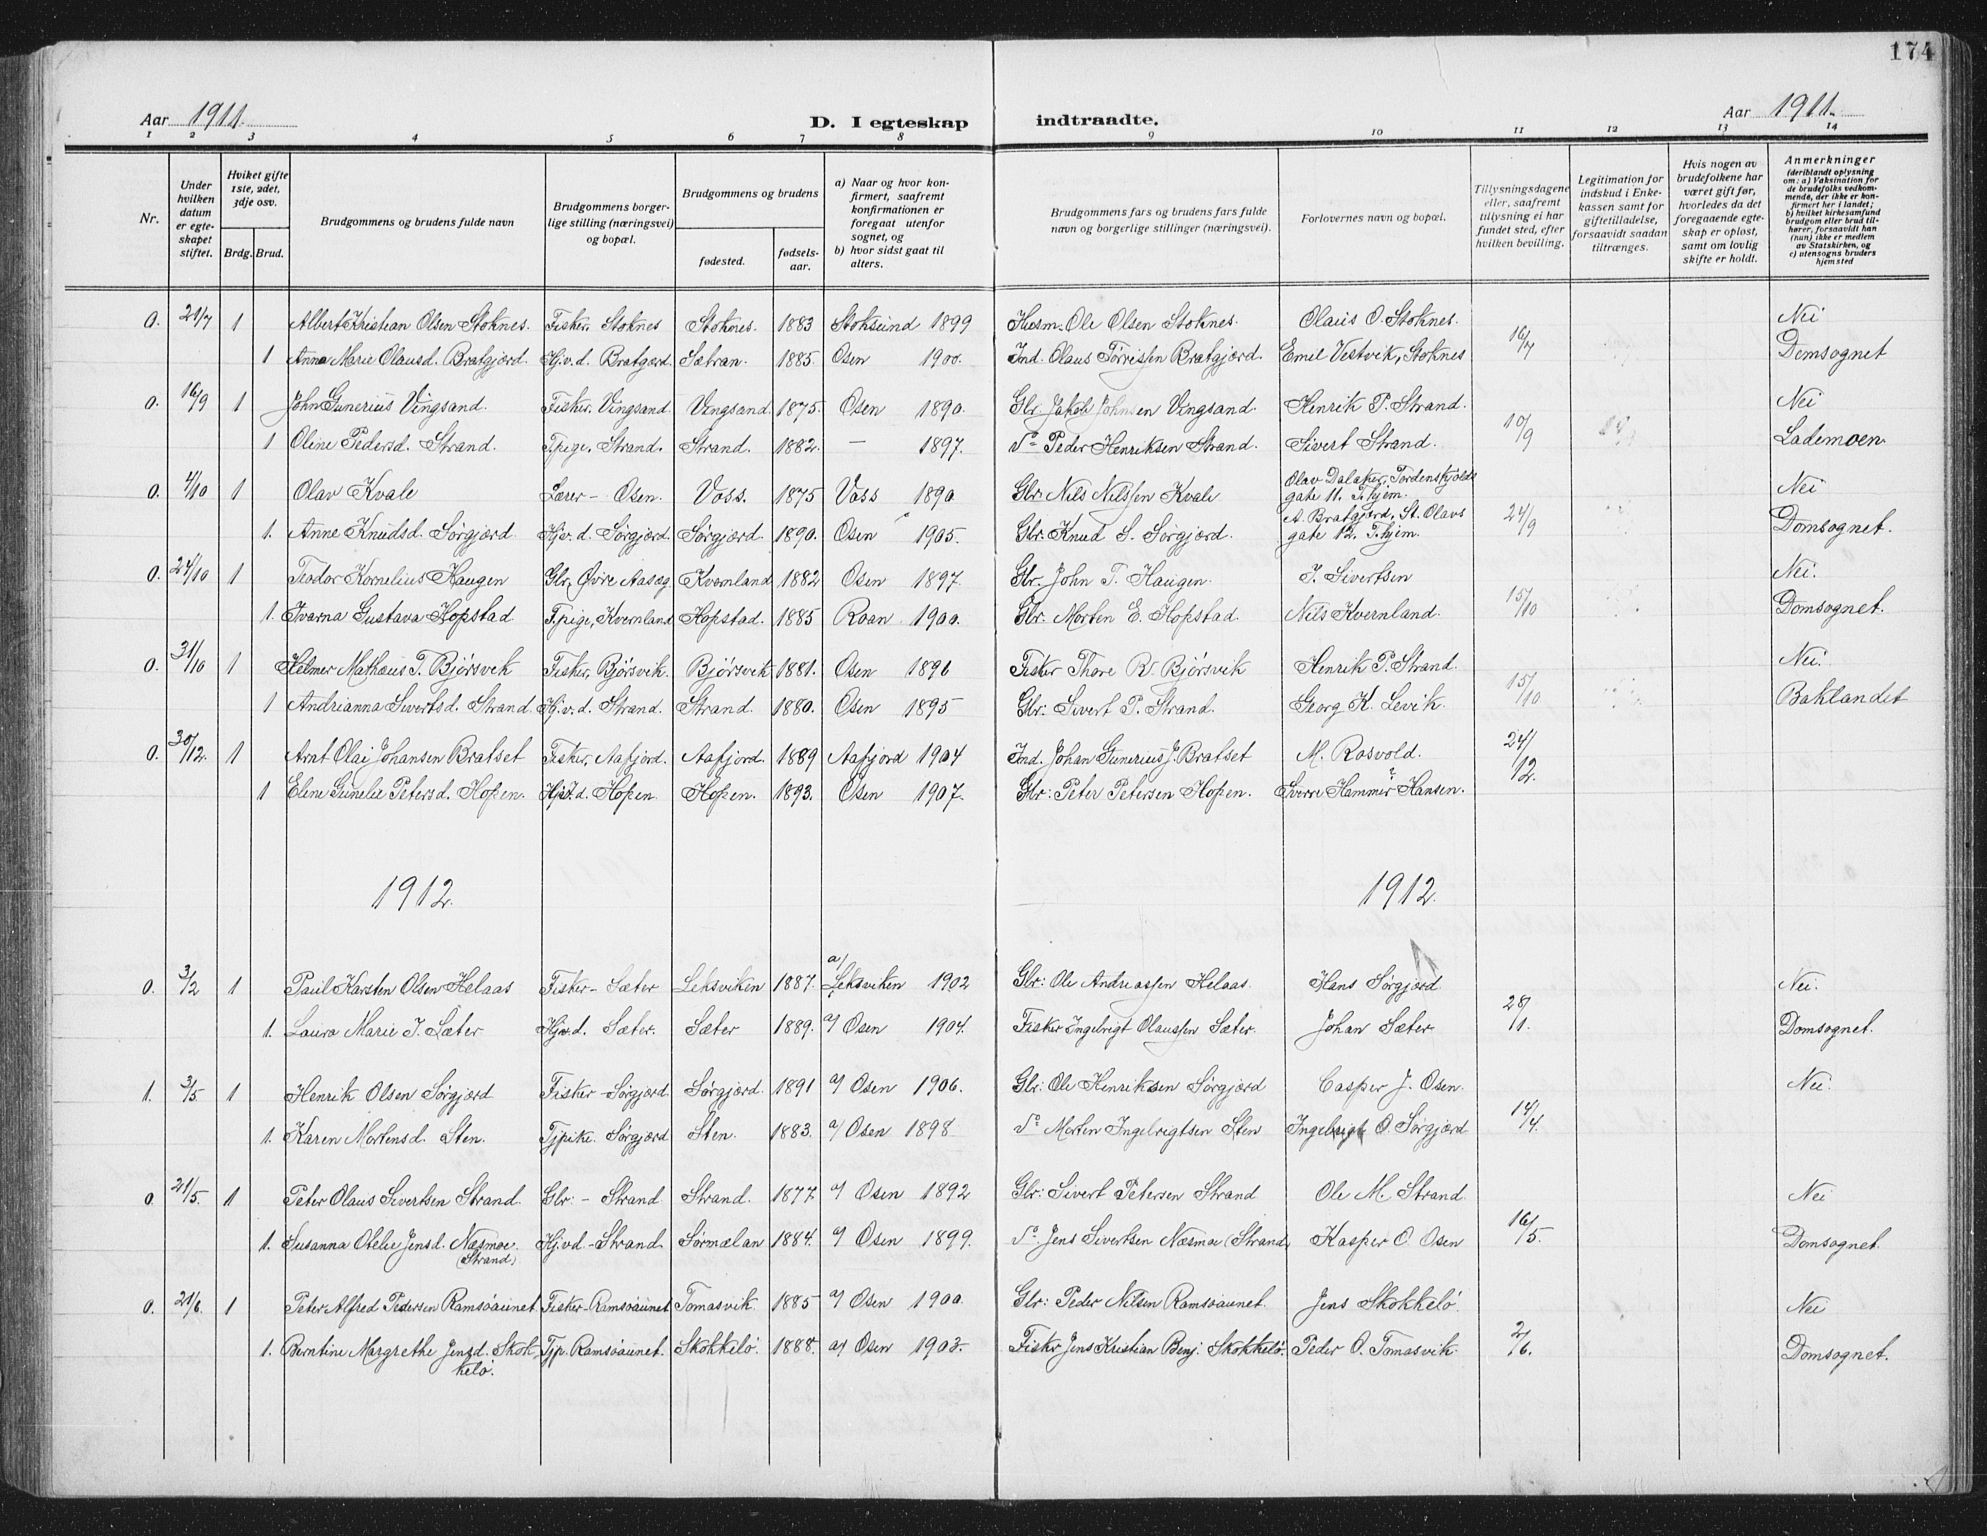 174
Aar 1911. D. I egteskap indtraadte. Aar 1911.
1 2 3 4 5 6 7 8 9 10 11 12 13 14
Nr.
Under hvilken datum er egteskapet stiftet.
Hviket gifte 1ste, 2det, 3dje osv.
Brdg. Brud.
Brudgommens og brudens fulde navn
Brudgommens borgerlige stilling (næringsvei) og bopæl.
Brudgommens og brudens
fødested.
fødselsaar.
a) Naar og hvor konfirmert, saafremt konfirmationen er foregaat utenfor sognet, og
b) hvor sidst gaat til alters.
Brudgommens fars og brudens fars fulde navn og borgerlige stillinger (næringsvei).
Forlovernes navn og bopæl.
Tillysningsdagene eller, saafremt tillysning ei har fundet sted, efter hvilken bevilling.
Legitimation for indskud i Enkekassen samt for giftetilladelse, forsaavidt saadan tiltrænges.
Hvis nogen av brudefolkene har været gift før, hvorledes da det foregaaende egteskap er opløst, samt om lovlig skifte er holdt.
Anmerkninger (deriblandt oplysning om: a) Vaksination for de brudefolks vedkommende, der ikke er konfirmert her i landet; b) hvilket kirkesamfund brudgom eller brud tilhører, forsaavidt han (hun) ikke er medlem av Statskirken, og c) utensogns bruders hjemsted
0. 21/7 1 Albert Kristian Olsen Stoknes. Fisker, Stoknes Stoknes. 1883 Stoksund 1899 Husm. Ole Olsen Stoknes. Olaus O. Stoknes. 16/7 Nei
1 Anna Marie Olausd. Bratgjærd. Hj.v.d. Bratgjærd Sætran. 1885. Osen 1900. Ind. Olaus Tørrissen Bratgjærd. Emil Vestvik, Stoknes Domsognet
0. 16/9 1 John Gunerius Vingsand. Fisker, Vingsand. Vingsand. 1875. Osen 1890. Gbr. Jakob Johnsen Vingsand. Henrik P. Strand. 10/9 Nei
1 Oline Pedersd. Strand. Tpige, Strand. Strand. 1882. — 1897. do Peder Henriksen Strand. Sivert Strand. Lademoen.
0. 4/10 1 Olav Kvale Lærer - Osen. Voss. 1875 Voss 1890 Gbr. Nils Nilssen Kvale Olav Dalaker, Tordenskjolds gate 11. T.hjem. 24/9 Nei
1. Anne Knudsd. Sørgjærd. Hjv.d. Sørgjærd. Sørgjærd. 1890. Osen 1905. Gbr. Knud S. Sørgjærd. A. Bratgjærd, St. Olavs gate 12. T.hjem. Domsognet.
0. 24/10 1 Teodor Kornelius Haugen Gbr, Øvre Aasæg Kvernland 1882 Osen 1897. Gbr. John T. Haugen. J. Sivertsen 15/10 Nei.
1. Ivarna Gustava Hopstad Tpige, Kvernland Hopstad. 1885 Roan 1900. Gbr. Morten E. Hopstad. Nils Kvernland. Domsognet.
0. 31/10 1 Helmer Mathæus T. Bjørsvik Fisker, Bjørsvik. Bjørsvik 1881. Osen 1896 Fisker Thore R. Bjørsvik Henrik P. Strand. 15/10 Nei.
1 Andrianna Sivertsd. Strand. Hj.v.d. Strand. Strand. 1880. Osen 1895 Gbr. Sivert P. Strand. Georg K. Levik. Baklandet
0. 30/12. 1 Arnt Olai Johansen Bratset Fisker, Aafjord. Aafjord. 1889 Aafjord 1904 Ind. Johan Gunerius J. Bratset M. Rosvold. 24/12.
1 Eline Gunelie Petersd. Hopen. Hjv.d. Hopen Hopen. 1893. Osen 1907. Gbr: Peter Petersen Hopen. Sverre Hammer Hansen.
1912. 1912.
0. 3/2 1 Paul Karsten Olsen Helaas Fisker - Sæter Leksviken 1887. a/ Leksviken 1902 Gbr: Ole Andreassen Helaas. Hans Sørgjærd 28/1. Nei.
1. Laura Marie I. Sæter Hjv.d. Sæter. Sæter 1889. a/ Osen 1904. Fisker Ingebrigt Olaussen Sæter Johan Sæter. Domsognet.
1. 3/5 1 Henrik Olsen Sørgjærd Fisker - Sørgjærd Sørgjærd. 1891 a/ Osen 1906. Gbr: Ole Henriksen Sørgjærd Casper J. Osen. 14/4. Nei.
1. Karen Mortensd. Sten. Tjpike. Sørgjærd Sten. 1883. a/ Osen 1898 do Morten Ingebrigtsen Sten Ingebrigt O. Sørgjærd
0 21/5. 1 Peter Olaus Sivertsen Strand. Gbr: - Strand Strand. 1877. a/ Osen 1892 Gbr: Sivert Petersen Strand Ole M. Strand 16/5. Nei
1. Susanna Otelie Jensd. Næsmoe (Strand) Hj.vd - Strand. Sørmælan 1884. a/ Osen 1899. do. Jens Sivertsen Næsmoe (Strand) Kasper O. Osen Domsognet.
0. 21/6 1 Peter Alfred Pedersen Ramsøaunet Fisker - Ramsøaunet Tomasvik. 1885 a/ Osen 1900. Gbr: Peder Nilsen Ramsøaunet. Jens Skokkelø. 2/6. Nei
1. Berntine Margrethe Jensd. Skokkelø. Tjp. Ramsøaunet. Skokkelø. 1888. a/ Osen 1903. Fisker Jens Kristian Benj. Skokkelø. Peder O. Tomasvik. Domsognet.